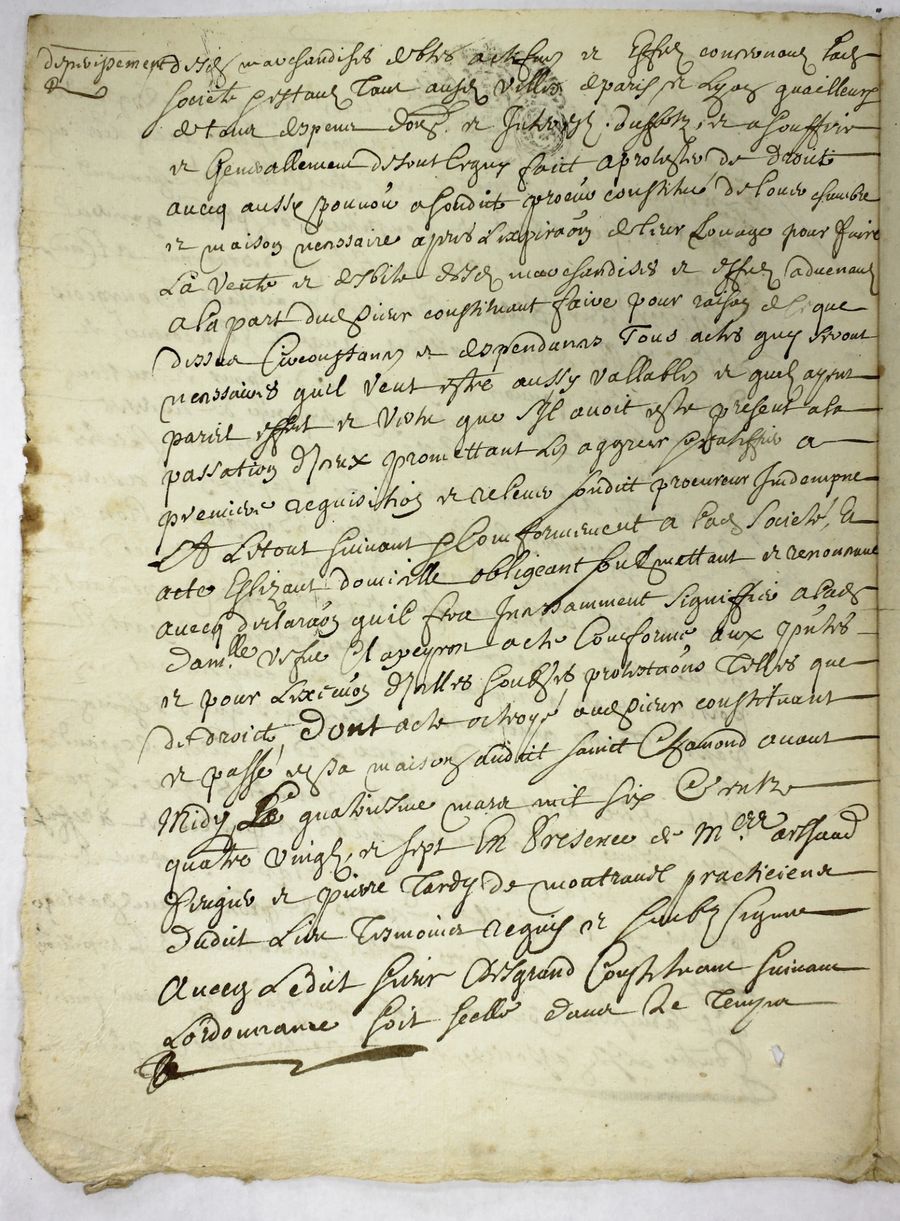 desd marchandises debtes actifs et Effets concernant lad
societé estant Tant ausd villes de paris et Lyon quailleurs
de tous despens et a souffrir
et Generallement de tout ce quy faict a protester de droict
avecq aussy pouvoir a sondict procur constitué de louer chambre
et maison necessaire apres l'expiraõn de leur Louage pour faire
La vente et debite desd marchandises et effets advenant
a la part dud sieur constituant faire pour raison de ce que
dessus Circonstances et dependances Tous actes quy seront
necessaires quil veut estre aussy vallables et quils ayent
pareil effect et vertu que s'yl avoit esté present a la
passation d'iceux promettant les aggreer ratiffier a
premiere requisition et relever sondict procureur Indempne
Et Le tout suivant et Conformement a lad Societé, Et
acte Eslizant domicille obligeant soubzmettant et renonceant
avecq declaraõn quil fera Incessamment signiffier a lad
dam.lle vefve Clapeyron acte Conforme aux pñtes
et pour L'execuõn d'icelles soubz les protestaõns Telles que
de droict dont acte octroyé aud sieur constituant
et passé en sa maison audict sainct Chamond avant
Midy Le quatorzieme mars mil six Cents
quatre vingt et sept En Presence de M.re arthaud
et pierre Tardy de montravel practiciens
dudict Lieu Tesmoins requis et soubz signes
Avecq Ledict sieur Desgrand Constituant suivant
L'ordonnance soit scellé dans Le Temps